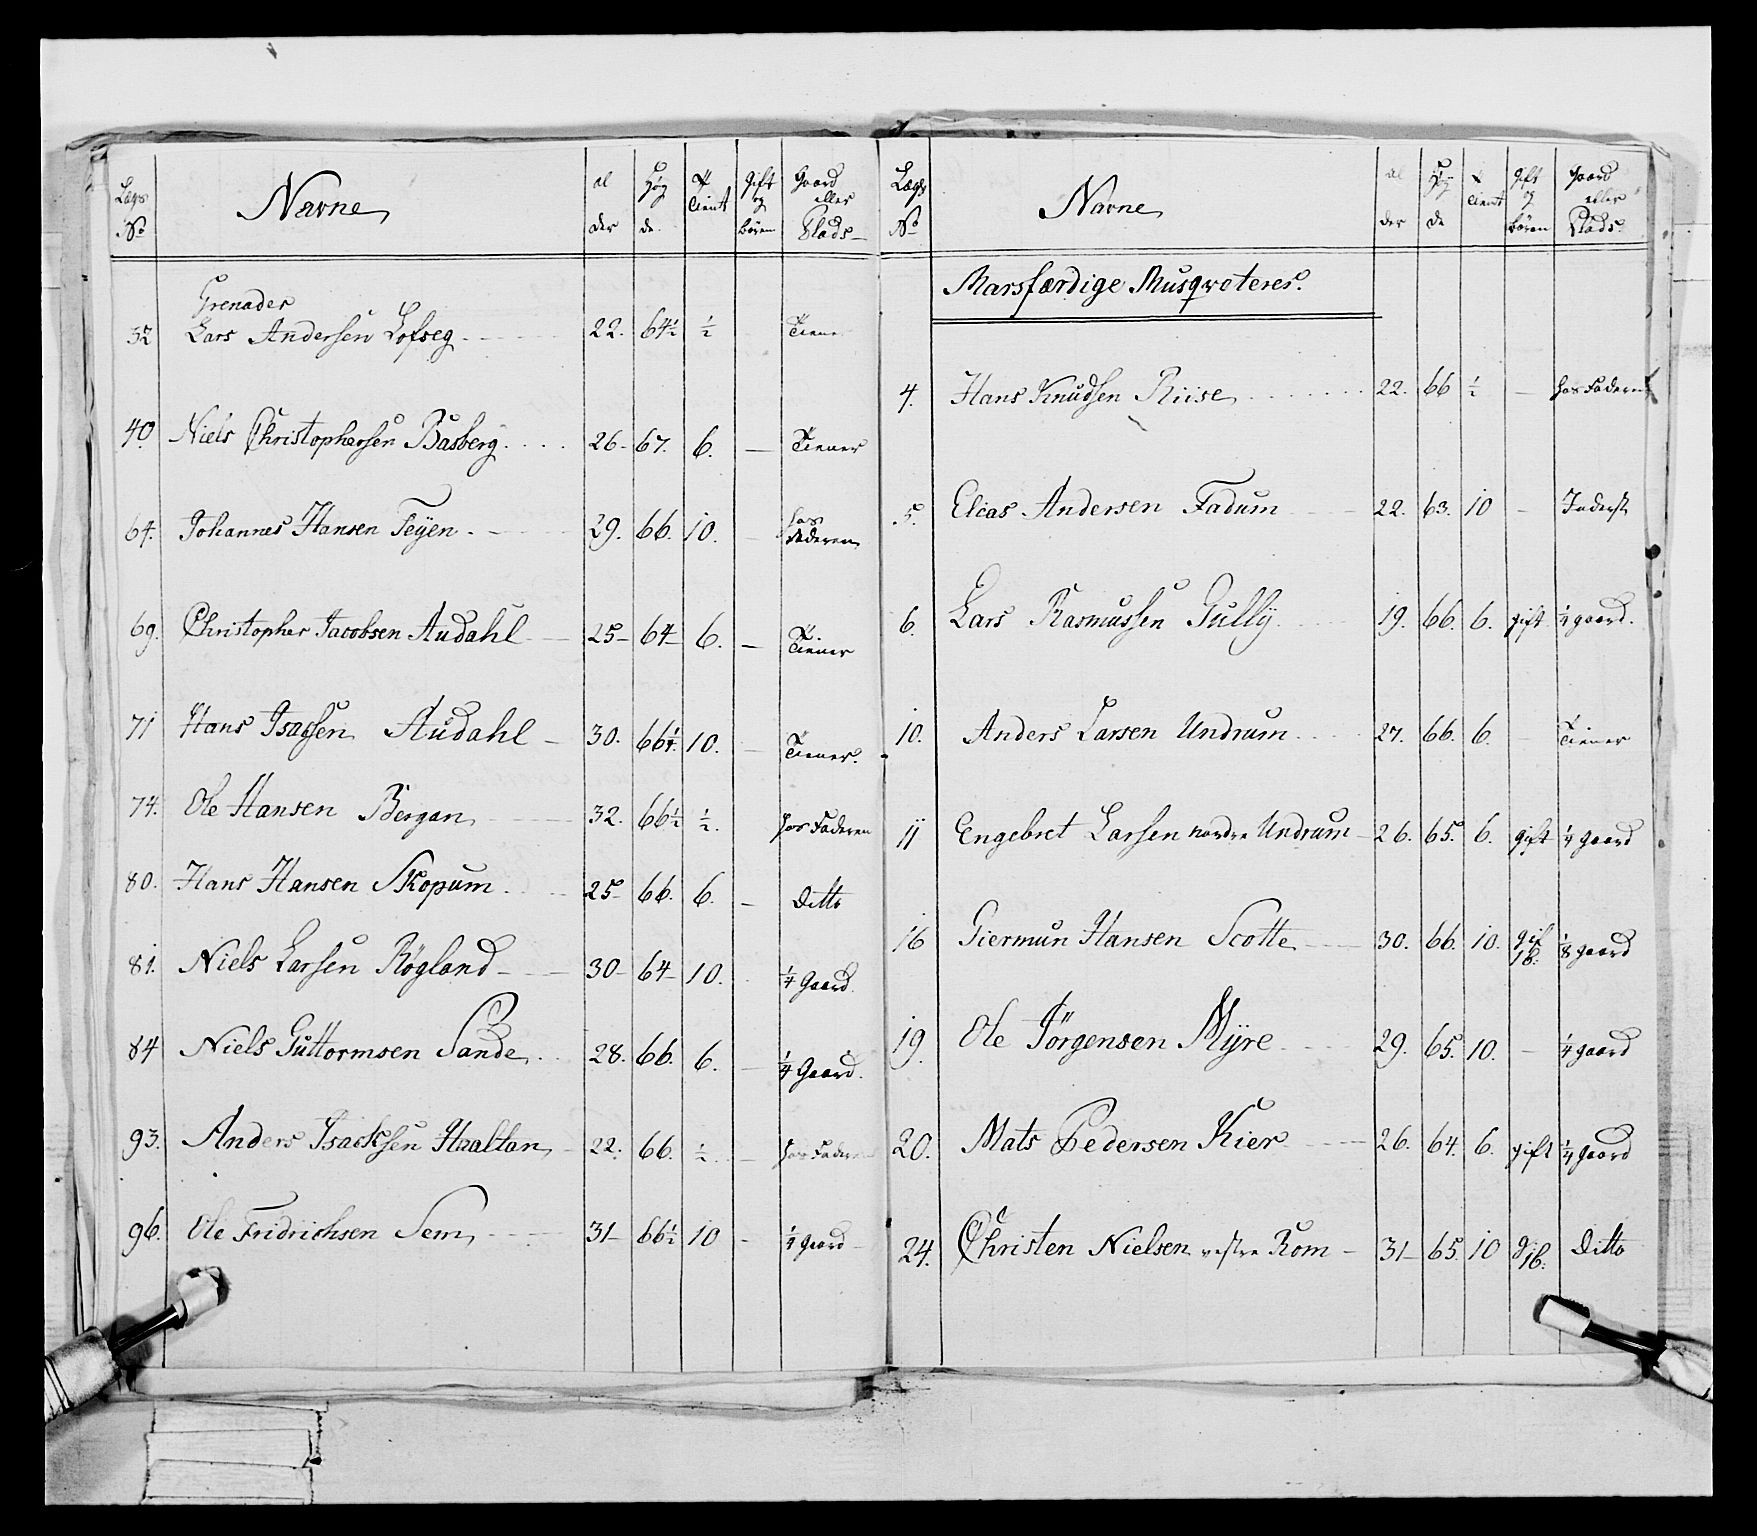 Lægs No | Navne | al der | Høy de | Tient | Gift og börn | Gaard eller Plads
Grenader
32 Lars Andersen Lofseg 22. 64½ ½ Tiener
40 Niels Christophersen Basberg 26 67. 6. — Tiener
64. Johannes Hansen Teÿen 29. 66. 10. — hos Faderen
69. Christopher Jacobsen Audahl 25 64 6. — Tiener
71 Hans Isacsen Audahl 30. 66¼ 10. — Tiener.
74. Ole Hansen Bergan 32. 66½ ½. hos Faderen
80. Hans Hansen Skopum 25 66. 6. — Ditto
81. Niels Larsen Røgland 30 64 10. ¼ Gaard.
84 Niels Guttormsen Sande 28. 66. 6. — ¼ Gaard.
93. Anders Isacksen Haaltan 22. 66. ½ — hos Faderen
96. Ole Fridrichsen Sem 31 66½ 10 - ¼ gaard
Lægs No | Navne | al der | Høy de | Tient | Gift og börn | Gaard eller Plads
Marsfærdige Musqveterer.
4. Hans Knudsen Riise 22. 66 ½ — hos Faderen
5. Elias Andersen Fadum 22. 63. 10 — Inderst
6. Lars Rasmussen Gullÿ 19. 66. 6. gift ¼ gaard.
10. Anders Larsen Undrum 27. 66. 6. — Tiener
11 Engebret Larsen nordre Undrum 26. 65. 6. gift ¼ gaard
16 Giermun Hansen Scotte 30. 66. 10. gif 1b: ⅛ gaard
19. Ole Jörgensen Mÿre 29. 65. 10. — ¼ gaard
20. Mats Pedersen Kier 26. 64. 6. gift ¼ gaard
24. Christen Nielsen vestre Rom 31 65. 10 g 1b: Ditto